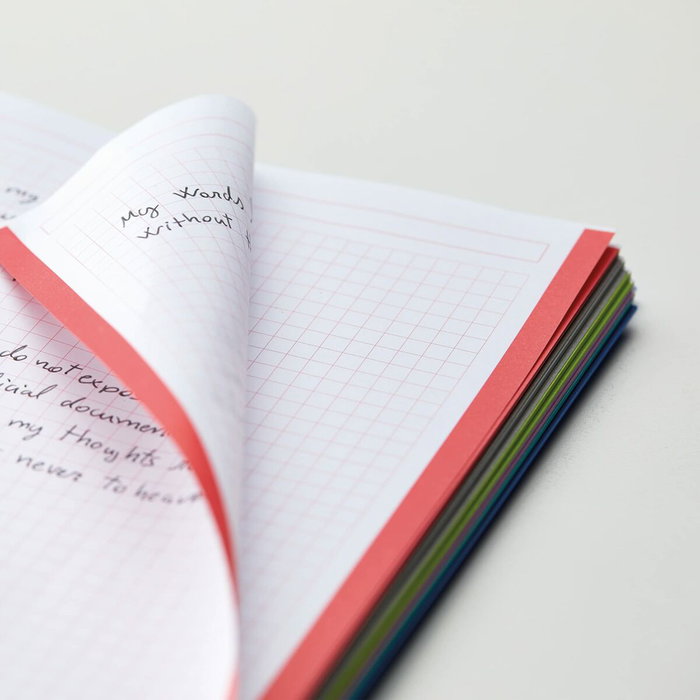 my
my words
without
do not expos
icial documen
my thoughts
never to hear